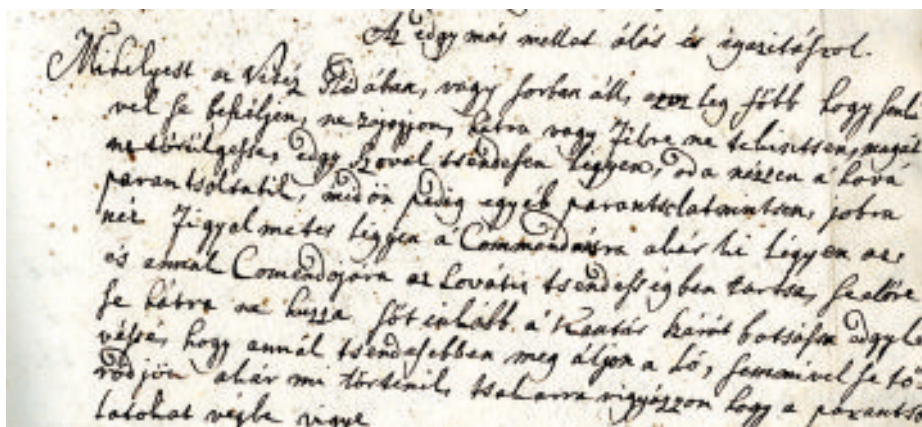 Az edgy más mellet álás és igazitásrol.
Mihelyest az Vitéz Glédában, vagy sorban áll, azon leg főbb hogy senki
vel se beszéljen, ne mozogjon, hátra vagy félre ne tekintsen, magát
ne törülgesse, edgy szovel tsendesen légyen, oda nézzen á hová
parantsoltatik, midőn pedig egyéb parantsolat nintsen, jobra
néz figyelmetes légyen á Commendásra akár ki légyen az,
és annál Comendójára az Lovátis tsendességben tartsa, se előre
se hátra ne huzza sőt inkább á Kantár szárát botsássa edgy le
véssé, hogy annál tsendesebben meg áljon a Ló, semmivel se tö
rödjön akár mi történik, tsak arra vigyázzon hogy a parantso
latokat végbe vigye